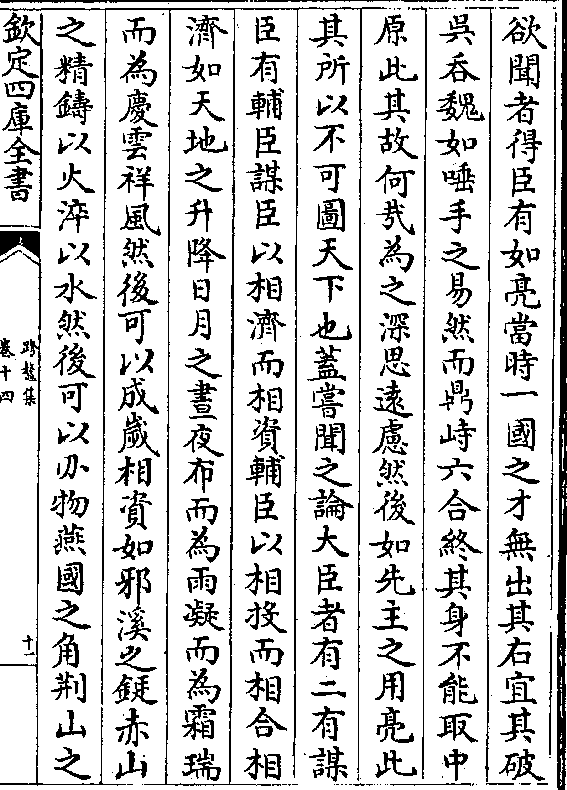 欲聞者得臣有如亮當時一國之才無出其右宜其破
吳吞魏如唾手之易然而鼎峙六合終其身不能取中
原此其故何㦲為之深思逺慮然後如先主之用亮此
其所以不可圖天下也蓋嘗聞之論大臣者有二有謀
臣有輔臣謀臣以相濟而相資輔臣以相投而相合相
濟如天地之升降日月之晝夜布而為雨凝而為霜瑞
而為慶雲祥風然後可以成嵗相資如邪溪之鋌赤山
之精鑄以火淬以水然後可以刅物燕國之角荆山之
欽定四庫全書
跨鼇集
卷十四
十一